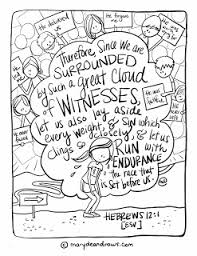 He delivered us
He forgave me
Therefore, Since we are
SURROUNDED
by Such a Great Cloud
of WITNESSES,
let us also lay aside
every weight, & sin which
clings so closely, & let us
RUN with
ENDURANCE
the race that
is set before us.
HEBREWS 12:1
[ESV]
© marydeandraws.com